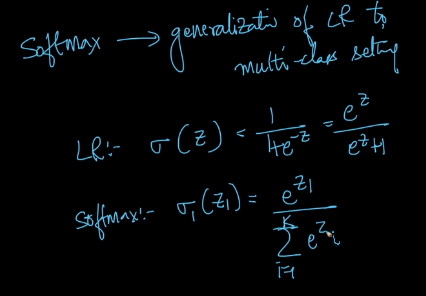 Softmax → generalizatio of LR to
multi-class setting
LR:- σ(z) = 1/(1+e^-z) = e^z/(e^z+1)
Softmax:- σ₁(z₁) = e^z₁/∑_{i=1}^{K} e^z_i